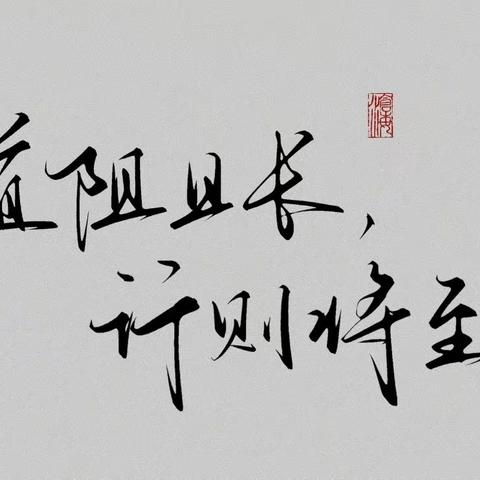 道阻且长，
行则将至
滄海